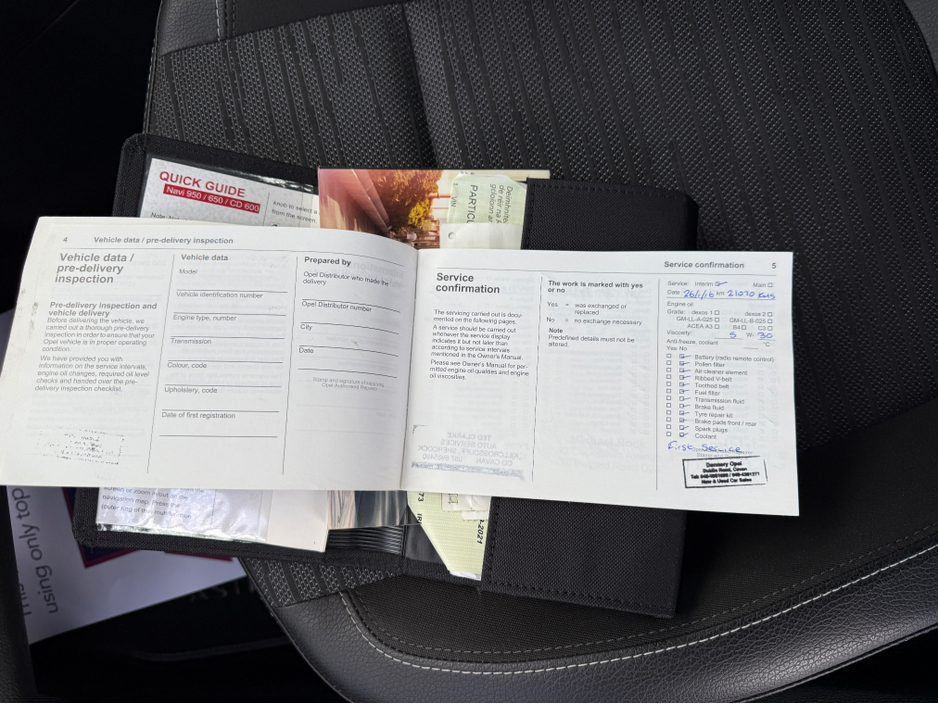 QUICK GUIDE
Navi 950 / 650 / CD 600
knob to select a
from the screen.
PARTICU
VIN
4 Vehicle data / pre-delivery inspection
Vehicle data /
pre-delivery
inspection
Pre-delivery inspection and
vehicle delivery
Before delivering the vehicle, we
carried out a thorough pre-delivery
inspection in order to ensure that your
Opel vehicle is in proper operating
condition.
We have provided you with
information on the service intervals,
engine oil changes, required oil level
checks and handed over the pre-
delivery inspection checklist.
Vehicle data
Model
Vehicle identification number
Engine type, number
Transmission
Colour, code
Upholstery, code
Date of first registration
Prepared by
Opel Distributor who made the
delivery
Opel Distributor number
City
Date
Stamp and signature of supplying
Opel Authorised Repairer
Service confirmation 5
Service
confirmation
The servicing carried out is docu-
mented on the following pages.
A service should be carried out
whenever the service display
indicates it but not later than
according to service intervals
mentioned in the Owner's Manual.
Please see Owner's Manual for per-
mitted engine oil qualities and engine
oil viscosities.
The work is marked with yes
or no
Yes = was exchanged or
replaced
No = no exchange necessary
Note
Predefined details must not be
altered.
Service: Interim Main
Date 26/1/16 km 21070 Kms
Engine oil
Grade: dexos 1 dexos 2
GM-LL-A-025 GM-LL-B-025
ACEA A3 B4 C3
Viscosity: 5 W- 30
Anti-freeze, coolant °C
Yes No
Battery (radio remote control)
Pollen filter
Air cleaner element
Ribbed V-belt
Toothed belt
Fuel filter
Transmission fluid
Brake fluid
Tyre repair kit
Brake pads front / rear
Spark plugs
Coolant
First Service
Dennehy Opel
Dublin Road, Cavan
New & Used Car Sales
TED CLARKE
AUTO SERVICES
CO CAVAN
navigation map. Press the
2021
using only top